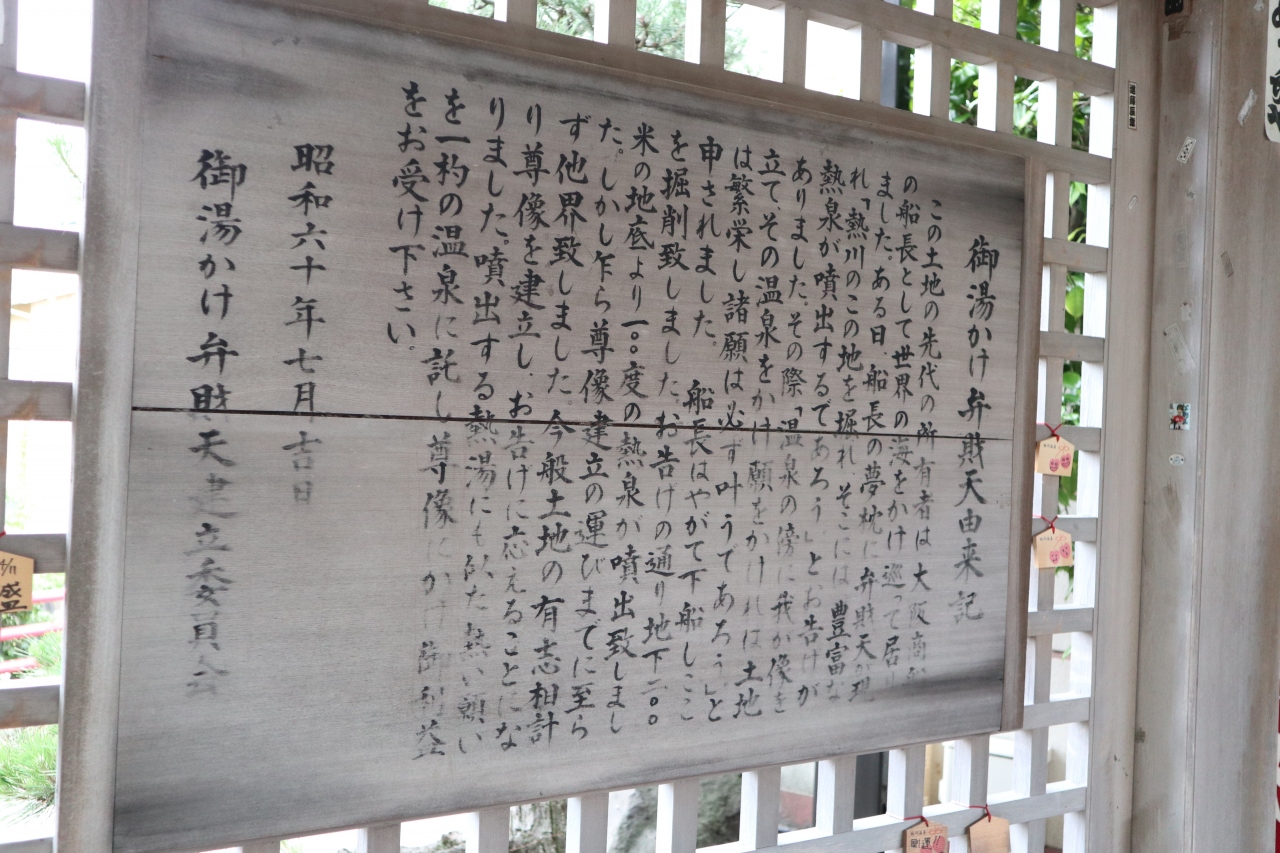 御湯かけ弁財天由来記
この土地の先代の所有者は大阪商船
の船長として世界の海をかけ巡って居り
ました。ある日、船長の夢枕に弁財天が現
れ「熱川のこの地を掘れそこには豊富な
熱泉が噴出するであろう」とお告げが
ありました。その際「温泉の傍に我が像を
立て、その温泉をかけ願をかければ土地
は繁栄し諸願は必ず叶うであろう」と
申されました。 船長はやがて下船しここ
を掘削致しました。お告げの通り地下二〇〇
米の地底より一〇〇度の熱泉が噴出致しまし
た。しかし乍ら尊像建立の運びまでに至ら
ず他界致しました。今般土地の有志相計
り尊像を建立し、お告げに応えることにな
りました。噴出する熱湯にも似た熱い願い
を一杓の温泉に託し尊像にかけ御利益
をお受け下さい。
昭和六十年七月吉日
御湯かけ弁財天建立委員会
盛
開運